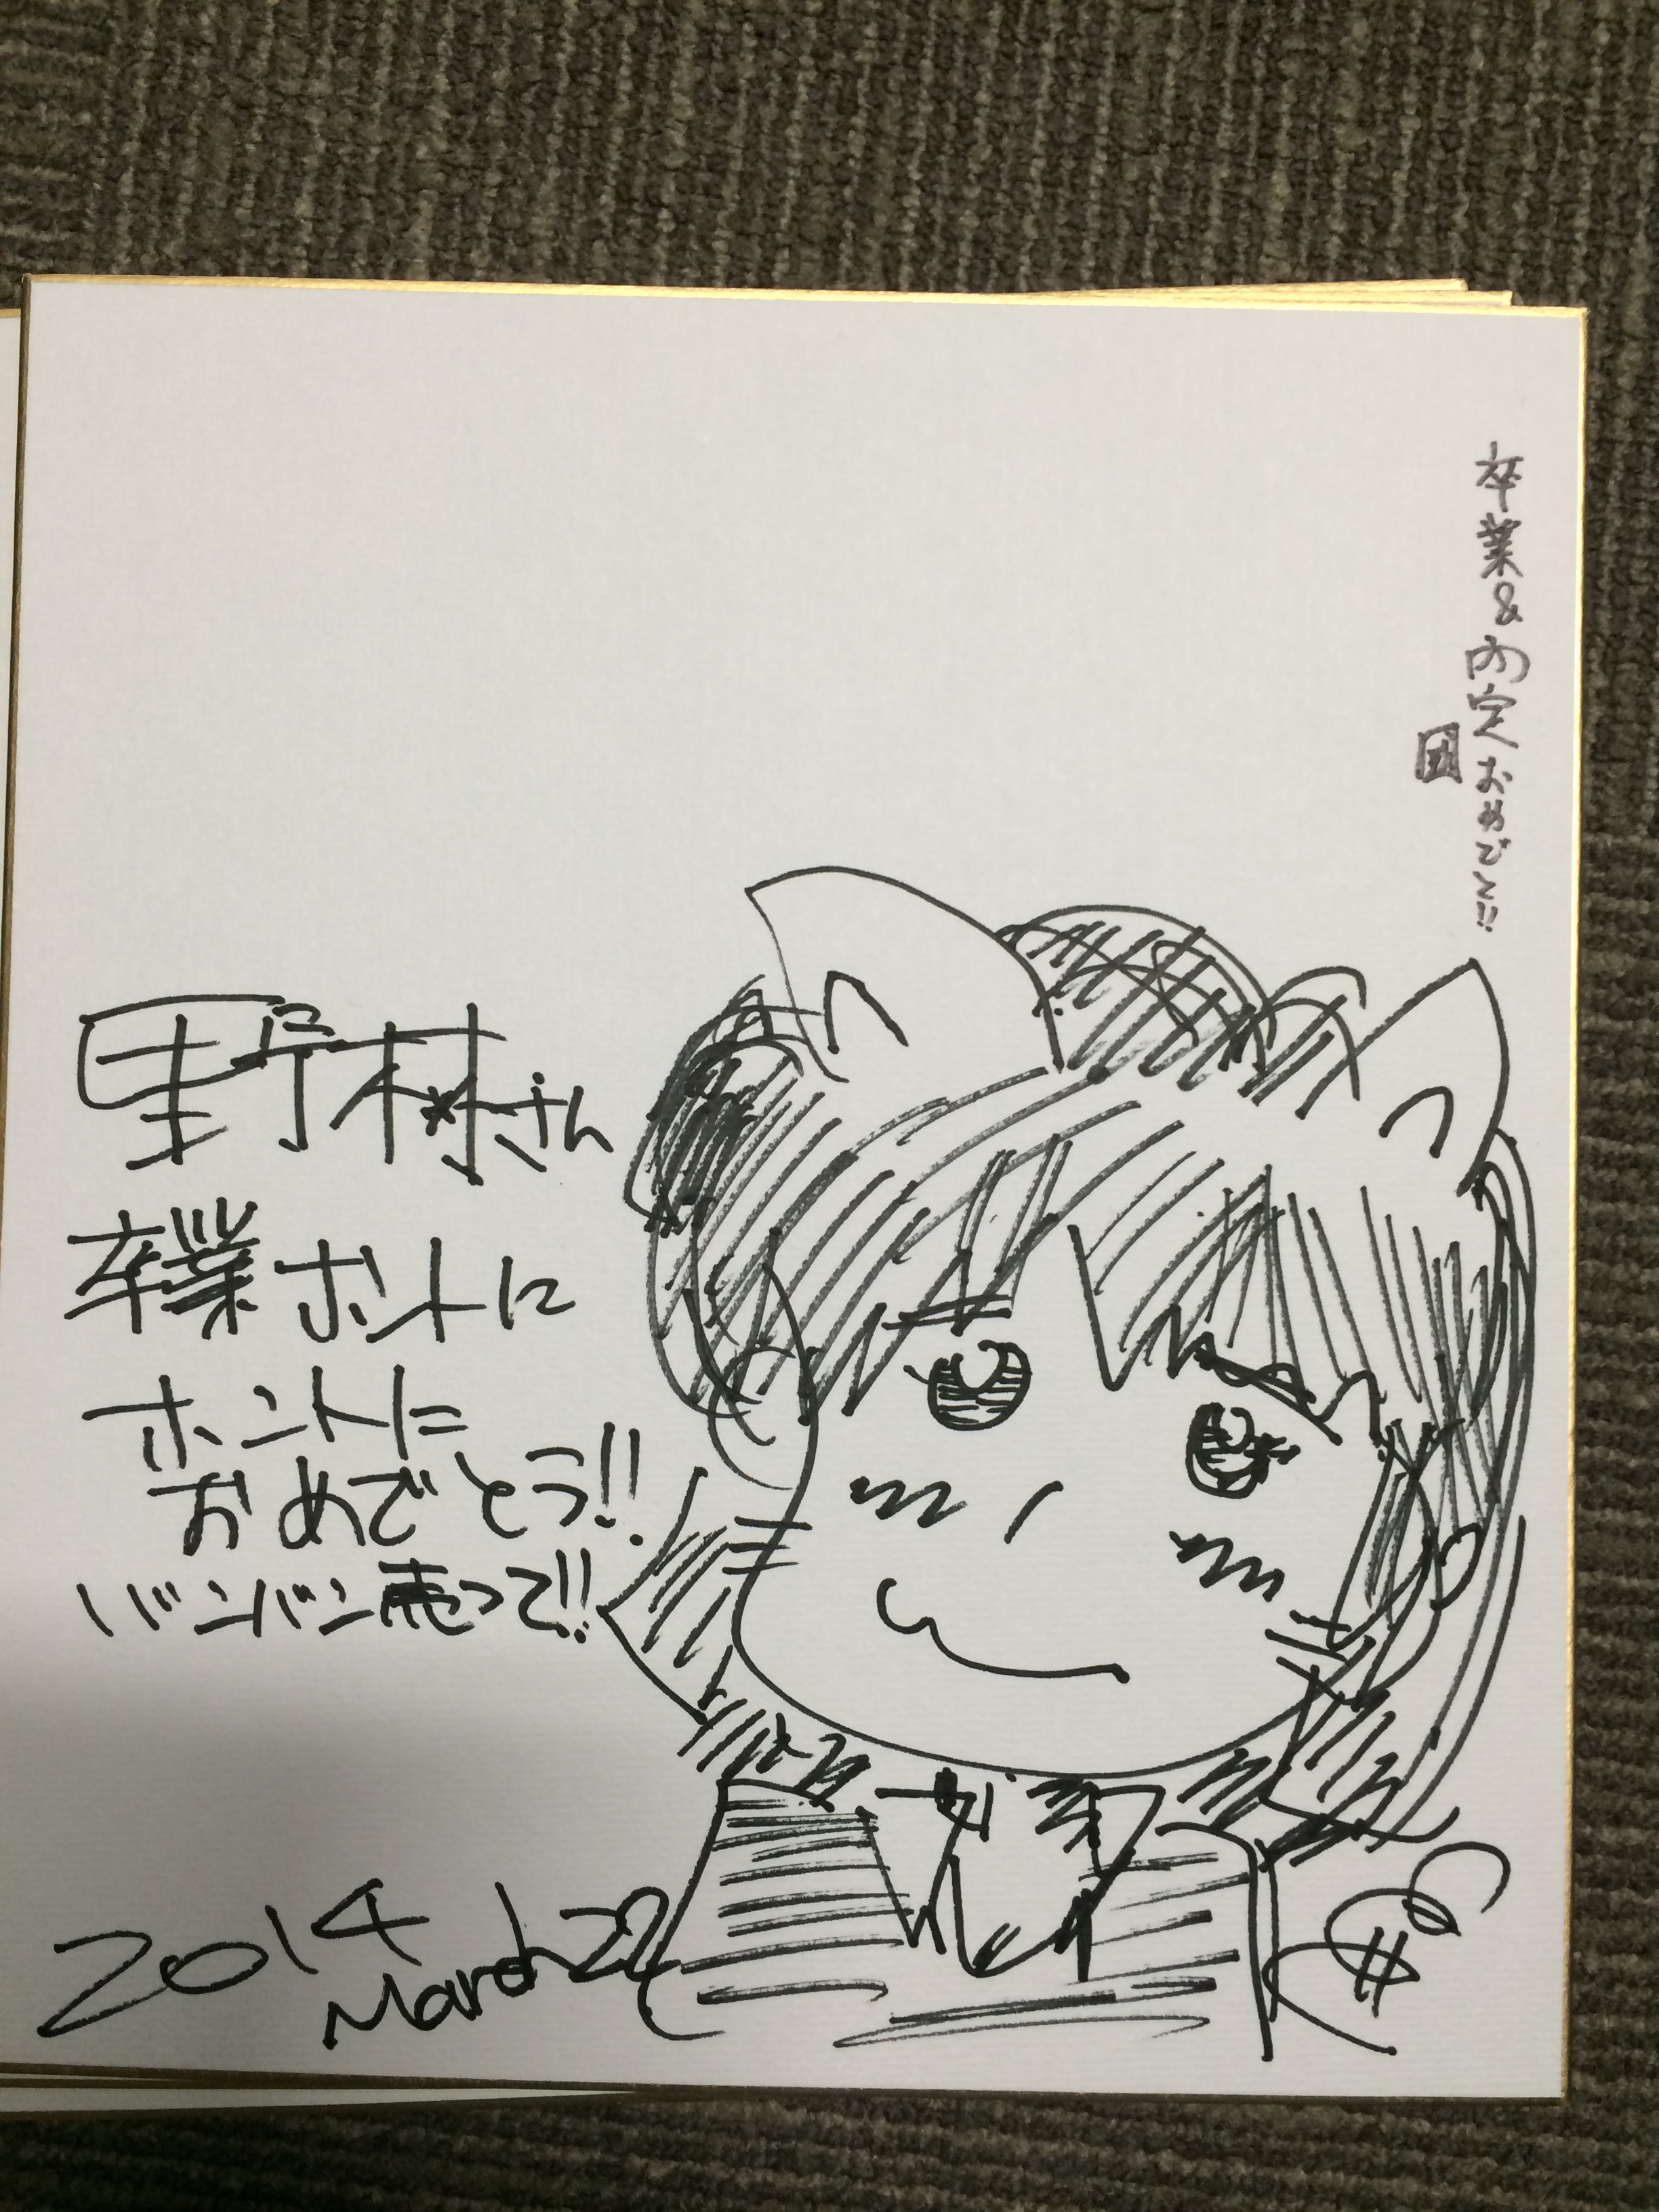 卒業&内定おめでとう!!
野村さん
卒業ホントに
ホントに
おめでとう!!
バンバン売って!!
2014
March 22